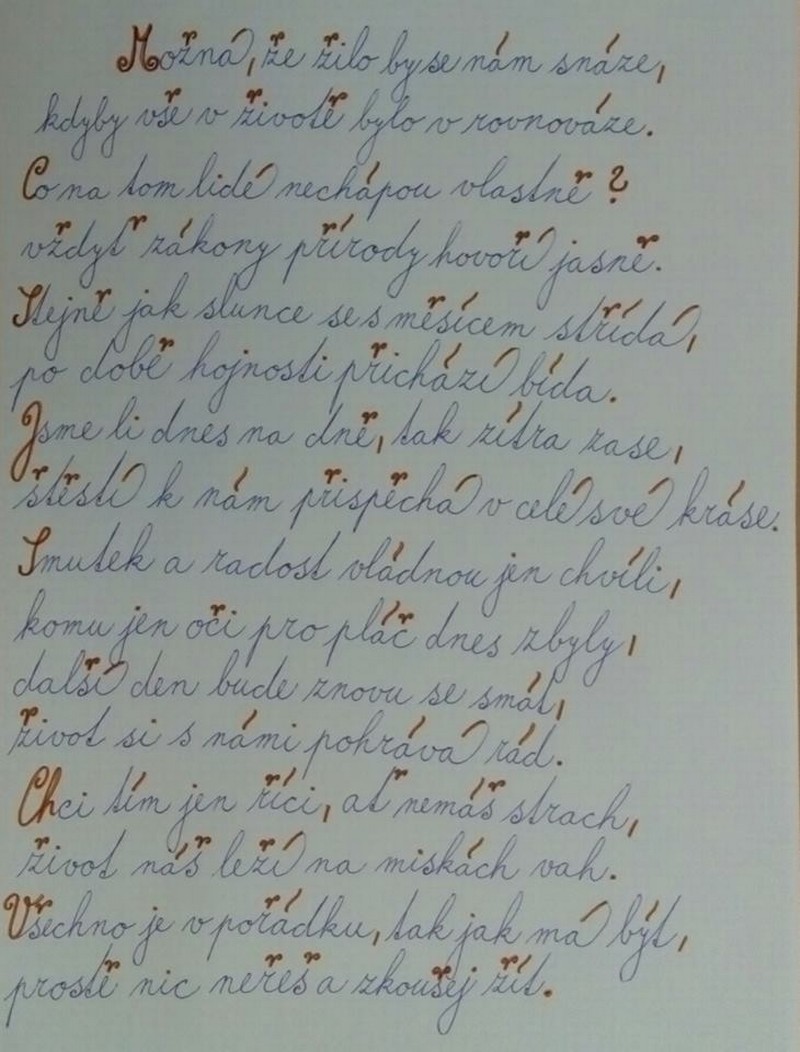 Možná, že žilo by se nám snáze,
kdyby vše v životě bylo v rovnováze.
Co na tom lidé nechápou vlastně ?
vždyť zákony přírody hovoří jasně.
Stejně jak slunce se s měsícem střídá,
po době hojnosti přichází bída.
Jsme li dnes na dně, tak zítra zase,
štěstí k nám přispěchá v celé své kráse.
Smutek a radost vládnou jen chvíli,
komu jen oči pro pláč dnes zbyly,
další den bude znovu se smát,
život si s námi pohrává rád.
Chci tím jen říci, ať nemáš strach,
život náš leží na miskách vah.
Všechno je v pořádku, tak jak má být,
prostě nic neřeš a zkoušej žít.